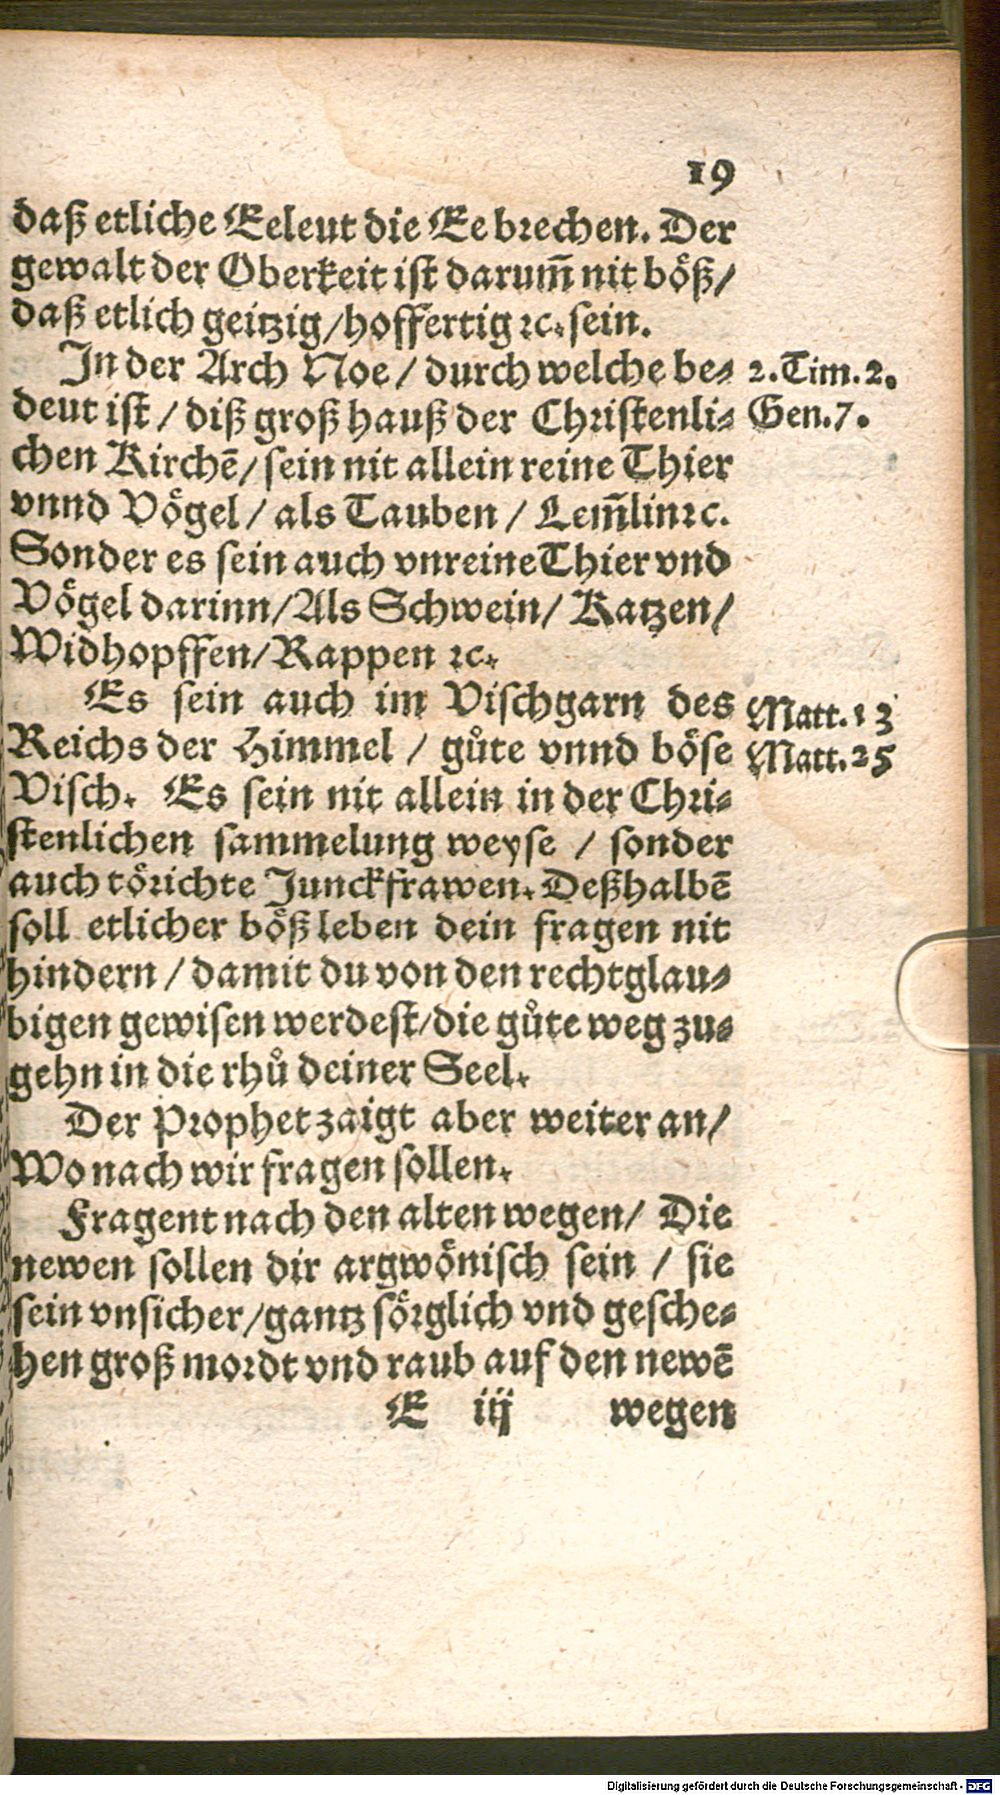 19
daß etliche Eeleut die Ee brechen. Der
gewalt der Oberkeit ist darum̄ nit böß/
daß etlich geitzig/hoffertig ꝛc. sein.
In der Arch Noe / durch welche be⸗ 2.Tim.2.
deut ist / diß groß hauß der Christenli⸗ Gen.7.
chen Kirchē/ sein nit allein reine Thier
vnnd Vögel / als Tauben / Lem̄lin ꝛc.
Sonder es sein auch vnreine Thier vnd
Vögel darinn/Als Schwein/ Katzen/
Widhopffen/Rappen ꝛc.
Es sein auch im Vischgarn des Matt.13
Reichs der Himmel / gůte vnnd böse Matt.25
Visch. Es sein nit allein in der Chri⸗
stenlichen sammelung weyse / sonder
auch törichte Junckfrawen. Deßhalbē
soll etlicher böß leben dein fragen nit
hindern / damit du von den rechtglau⸗
bigen gewisen werdest/die gůte weg zu⸗
gehn in die rhů deiner Seel.
Der Prophet zaigt aber weiter an/
Wo nach wir fragen sollen.
Fragent nach den alten wegen/ Die
newen sollen dir argwönisch sein / sie
sein vnsicher/gantz sörglich vnd gesche⸗
hen groß mordt vnd raub auf den newē
E iij wegen
Digitalisierung gefördert durch die Deutsche Forschungsgemeinschaft - DFG